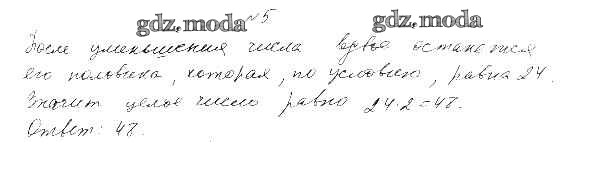 gdz.moda №5 gdz.moda
После уменьшения числа вдвое останется
его половина, которая, по условию, равна 24.
Значит целое число равно 24·2=48.
Ответ: 48.